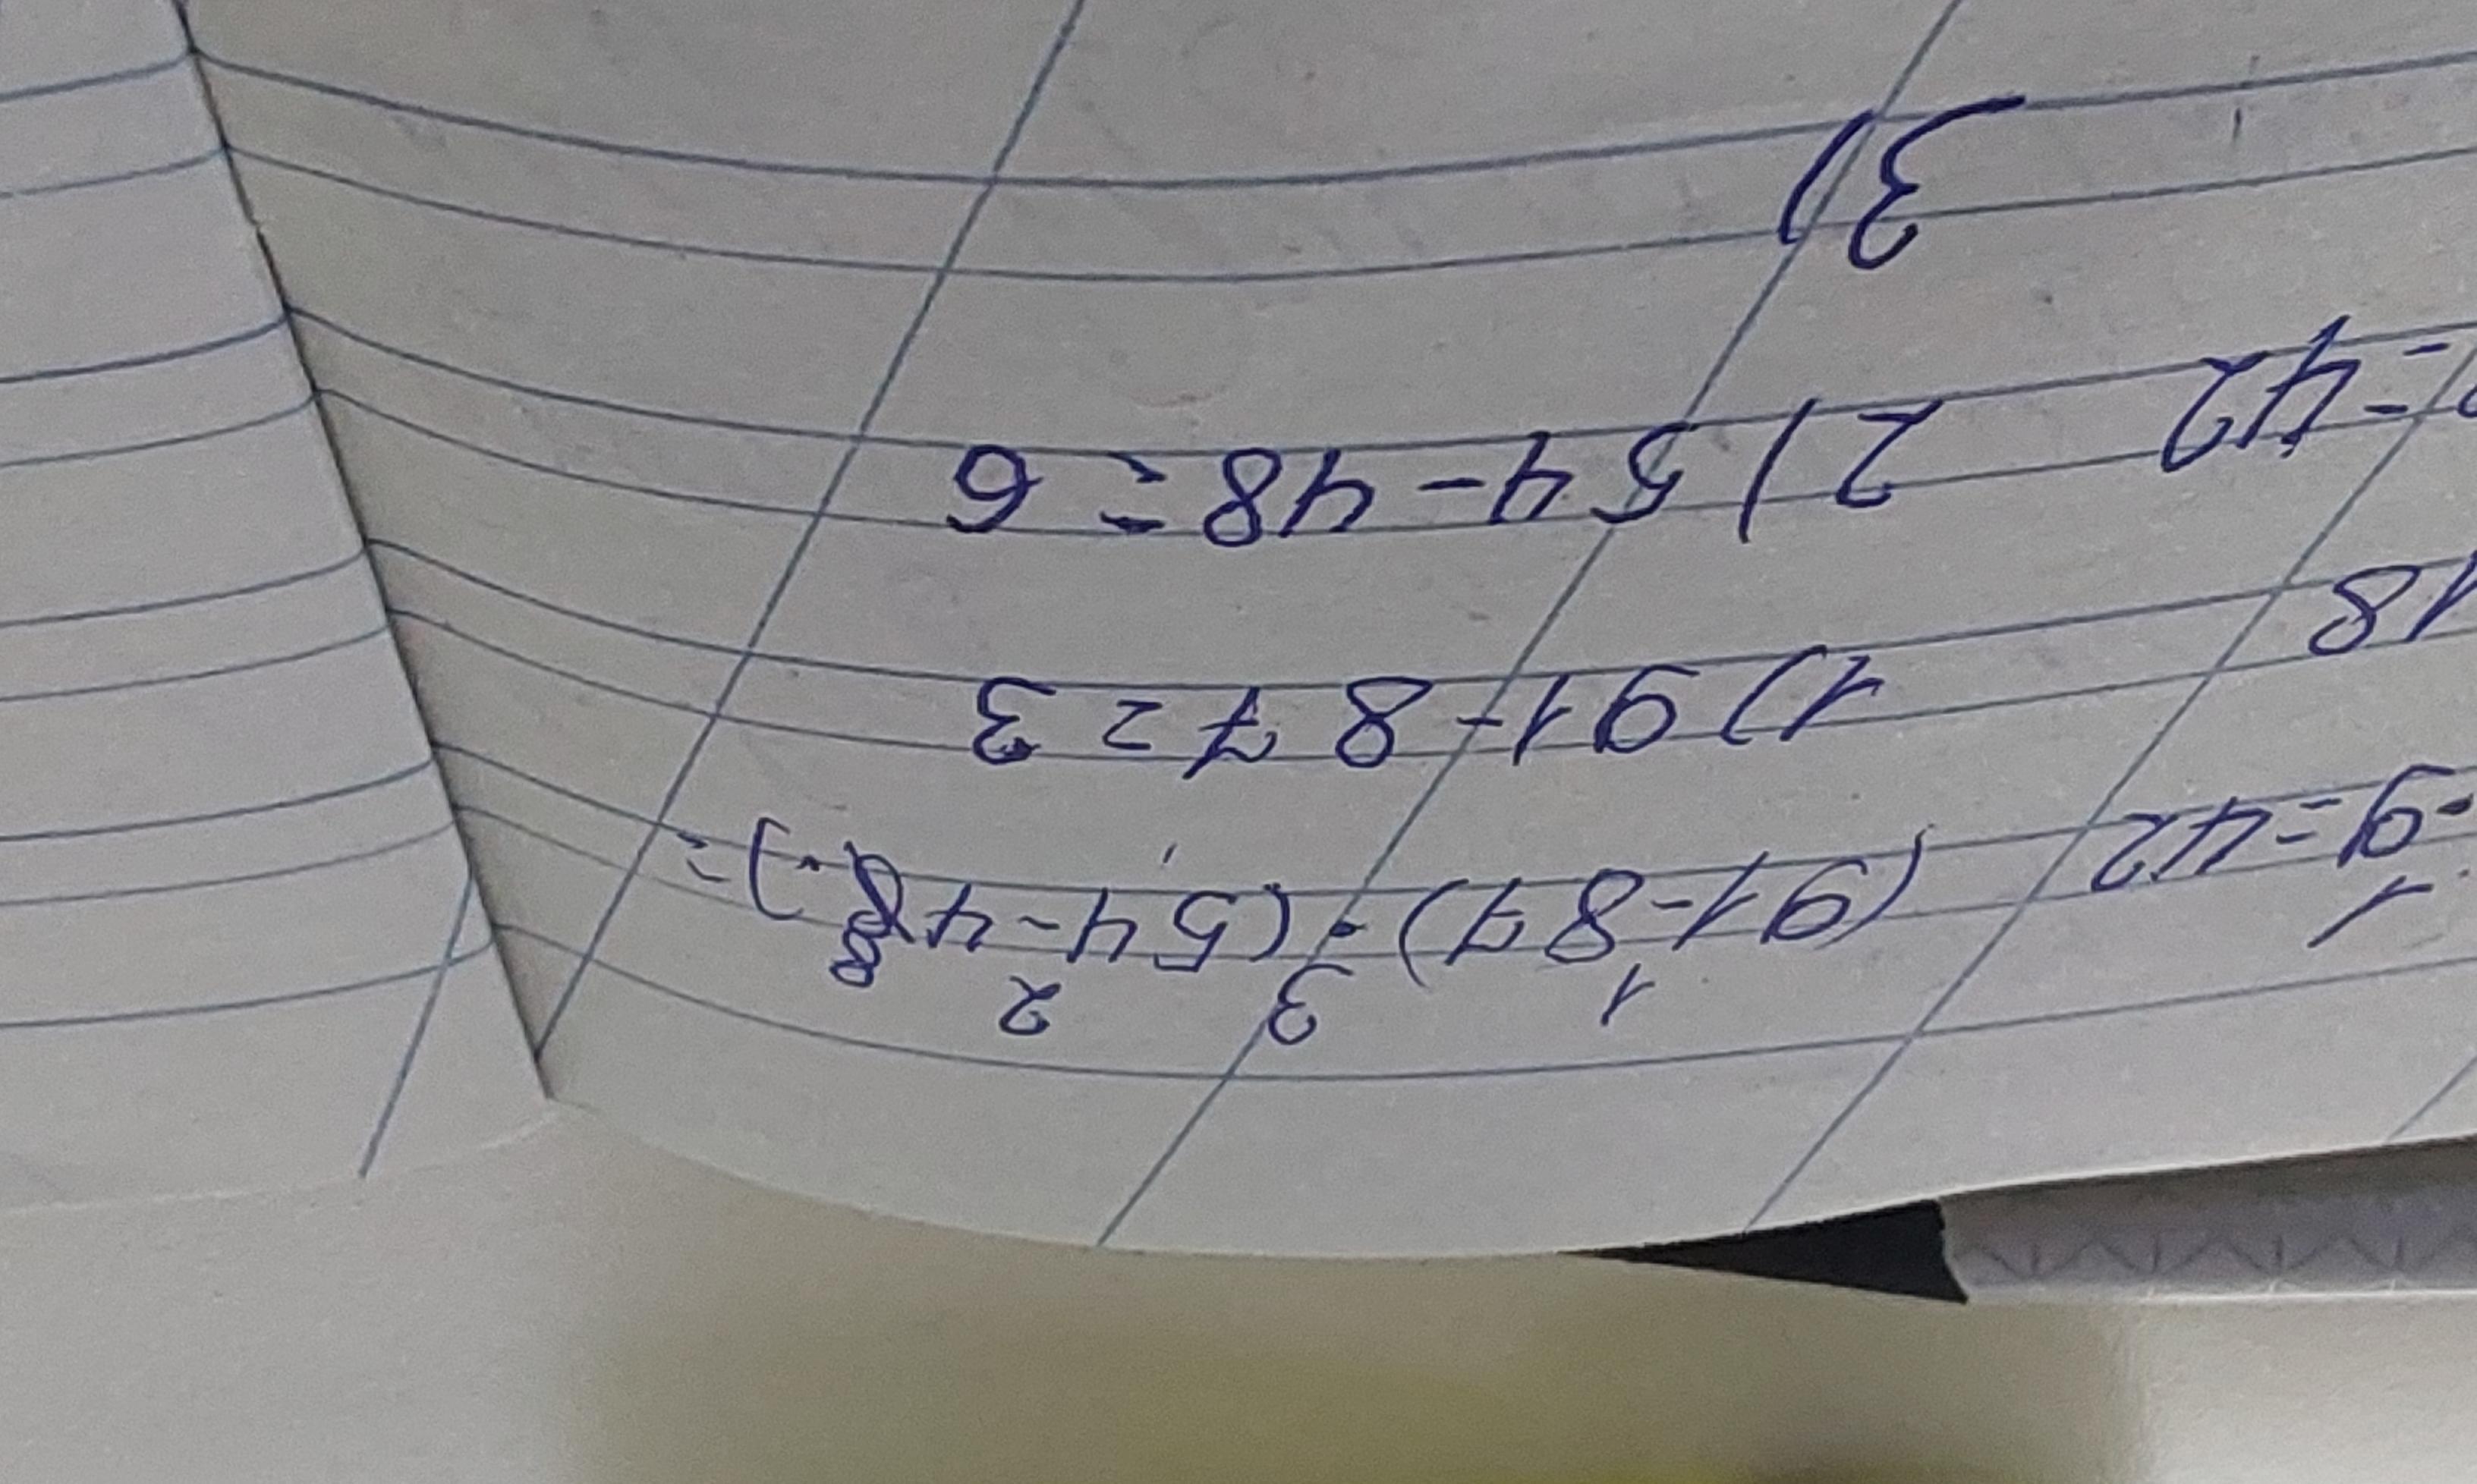 1 1 3 2 8
9=42 (91-87)·(54-48)=
18 1) 91-87=3
=42 2) 54-48=6
3)